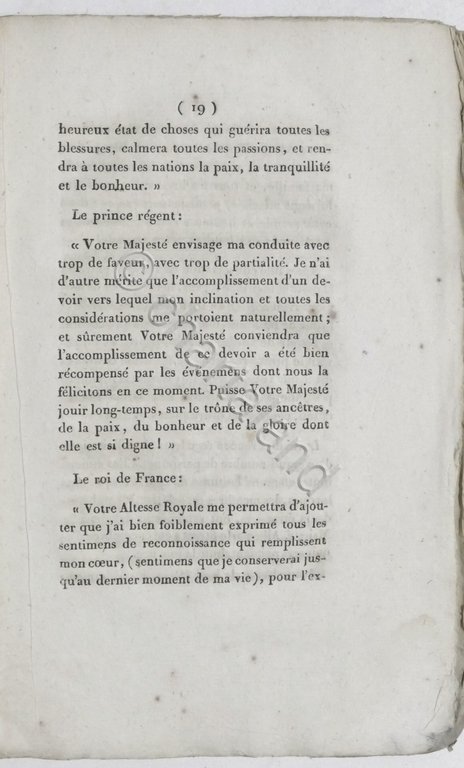 ( 19 )
heureux état de choses qui guérira toutes les
blessures, calmera toutes les passions, et ren-
dra à toutes les nations la paix, la tranquillité
et le bonheur. »
Le prince régent :
« Votre Majesté envisage ma conduite avec
trop de faveur, avec trop de partialité. Je n'ai
d'autre mérite que l'accomplissement d'un de-
voir vers lequel mon inclination et toutes les
considérations me portoient naturellement ;
et sûrement Votre Majesté conviendra que
l'accomplissement de ce devoir a été bien
récompensé par les évènemens dont nous la
félicitons en ce moment. Puisse Votre Majesté
jouir long-temps, sur le trône de ses ancêtres,
de la paix, du bonheur et de la gloire dont
elle est si digne ! »
Le roi de France :
« Votre Altesse Royale me permettra d'ajou-
ter que j'ai bien foiblement exprimé tous les
sentimens de reconnoissance qui remplissent
mon cœur, (sentimens que je conserverai jus-
qu'au dernier moment de ma vie), pour l'ex-